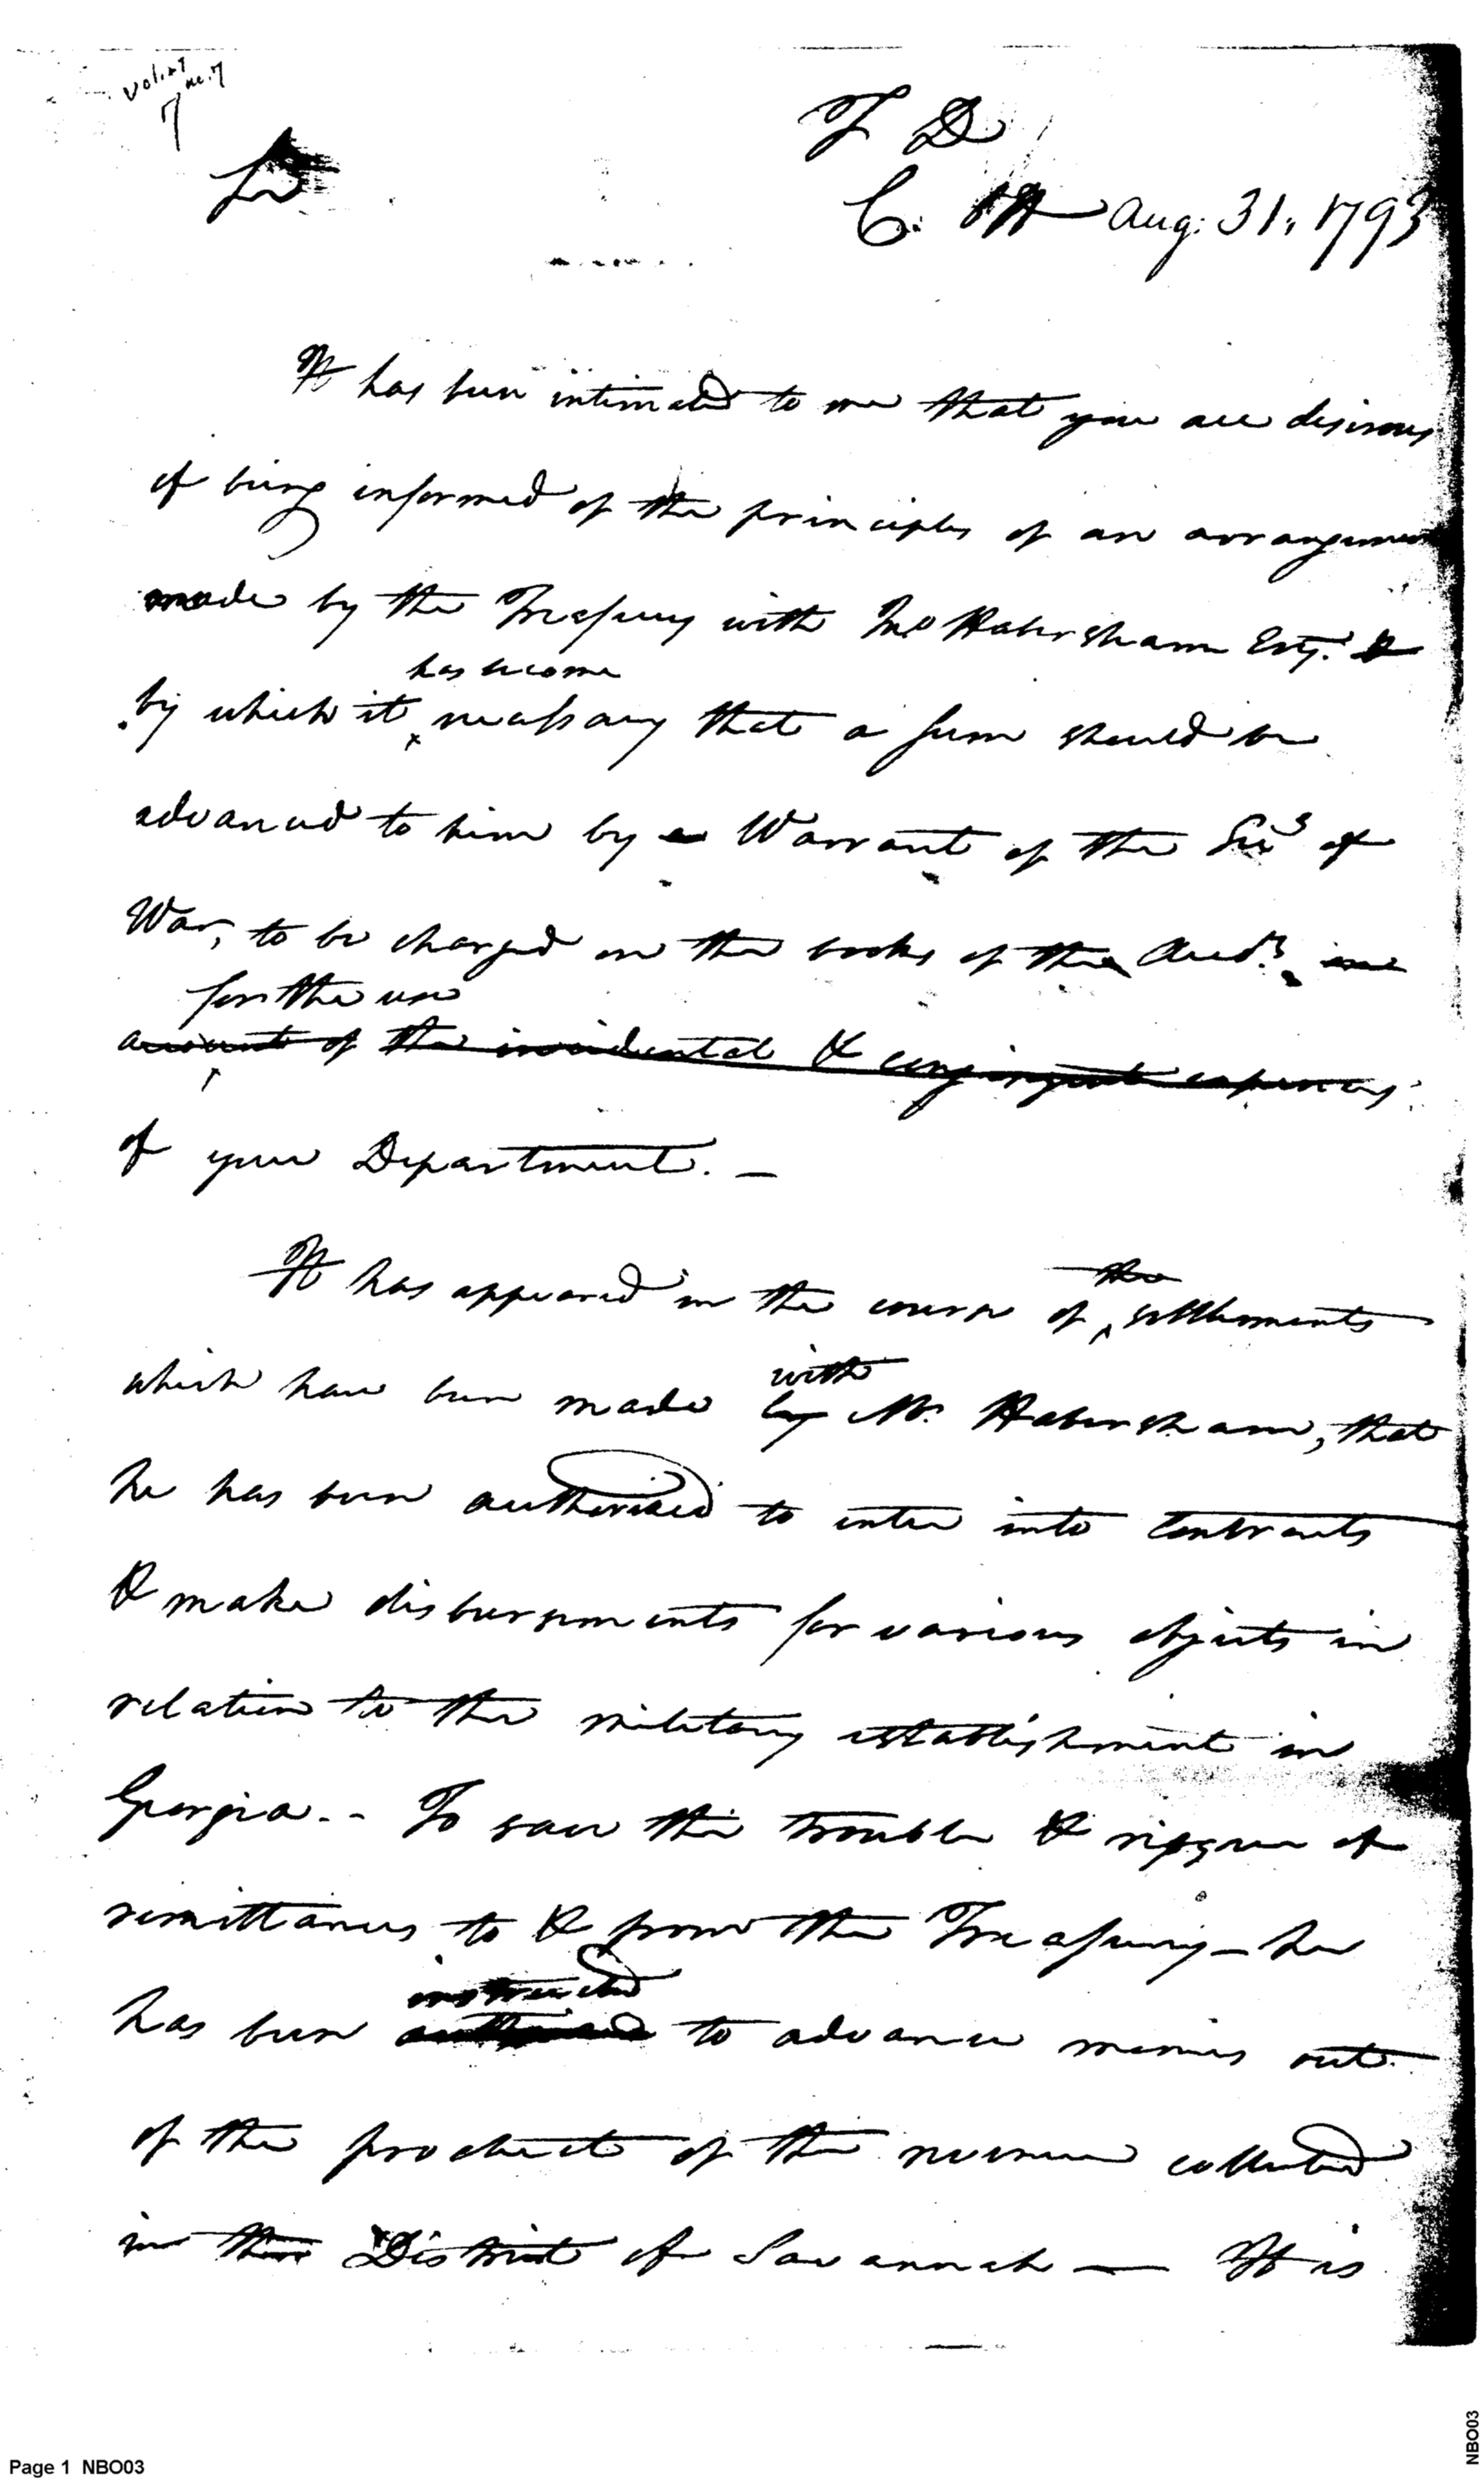 vol: 27
no. 7
7
T D
Sir
C. Off Aug: 31, 1793
It has been intimated to me that you are desirous
of being informed of the principles of an arrangement
made by the Treasury with Jno Habersham Esq.
has become
by which it necessary that a sum should be
advanced to him by a Warrant of the Secy of
War, to be charged on the books of the Audr. in
for the use
account of the incidental & contingent expences
of your Department. —
It has appeared in the course of the settlements
with
which have been made by Mr. Habersham, that
he has been authorised to enter into Contracts
& make disbursements for various objects in
relation to the military establishment in
Georgia. - - To save the trouble & risque of
remittances to & from the Treasury — he
instructed
has been to advance monies out
of the product of the revenue collected
in the District of Savannah — It is
Page 1 NBO03
NBO03